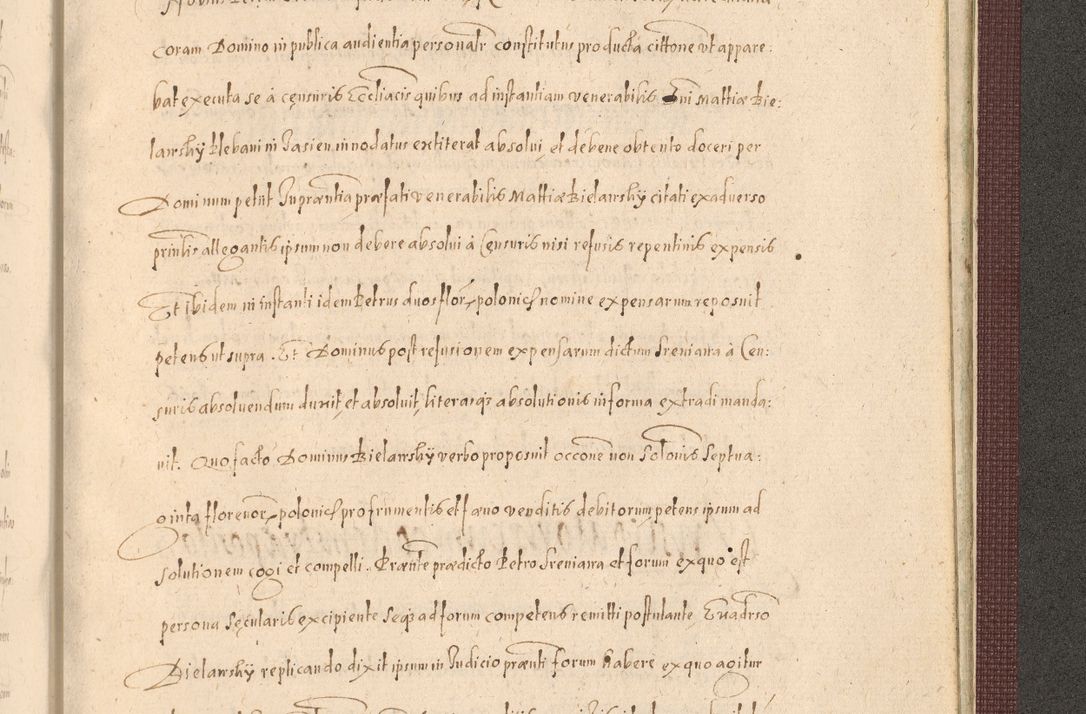 coram Domino in publica audientia personalr constitutus producta cittone vt appare:
bat executa se à censuris Eccliacis quibus ad instantiam venerabilis Dni Mattiæ Bie:
larrshÿ Plebani in Jasien innodatus extiterat absolui et debene obtento doceri per
Dominum petiit In præntia præfati venerabilis Mattiæ Bielarrshÿ citati ex aduerso
prinlis allegantis ipsum non debere absolui à Censuris nisi refusis repentinis expensis
Et ibidem in instanti idem Petrus duos flor, polonicl nomine expensarum reposuit
petens ut supra. Et Dominus post refusionem expensarum dictum Sreniaua à Cen:
suris absoluendum duxit, et absoluit, literasq₃ absolutionis in forma extradi manda:
uit. Quo facto Dominus Bielarrshÿ verbo proposuit occone non Solonis Septua:
ginta florenor, polonicl pro frumentis et fæno venditis debitorum petens ipsum ad
solutionem cogi et compelli. Prænte prædicto Petro Sreniaua et forum ex quo est
persona Sęcularis excipiente Seq₃ ad forum competens remitti postulante Euadrso
Bielarrshÿ replicando dixit ipsum in Judicio prænti forum habere ex quo agitur